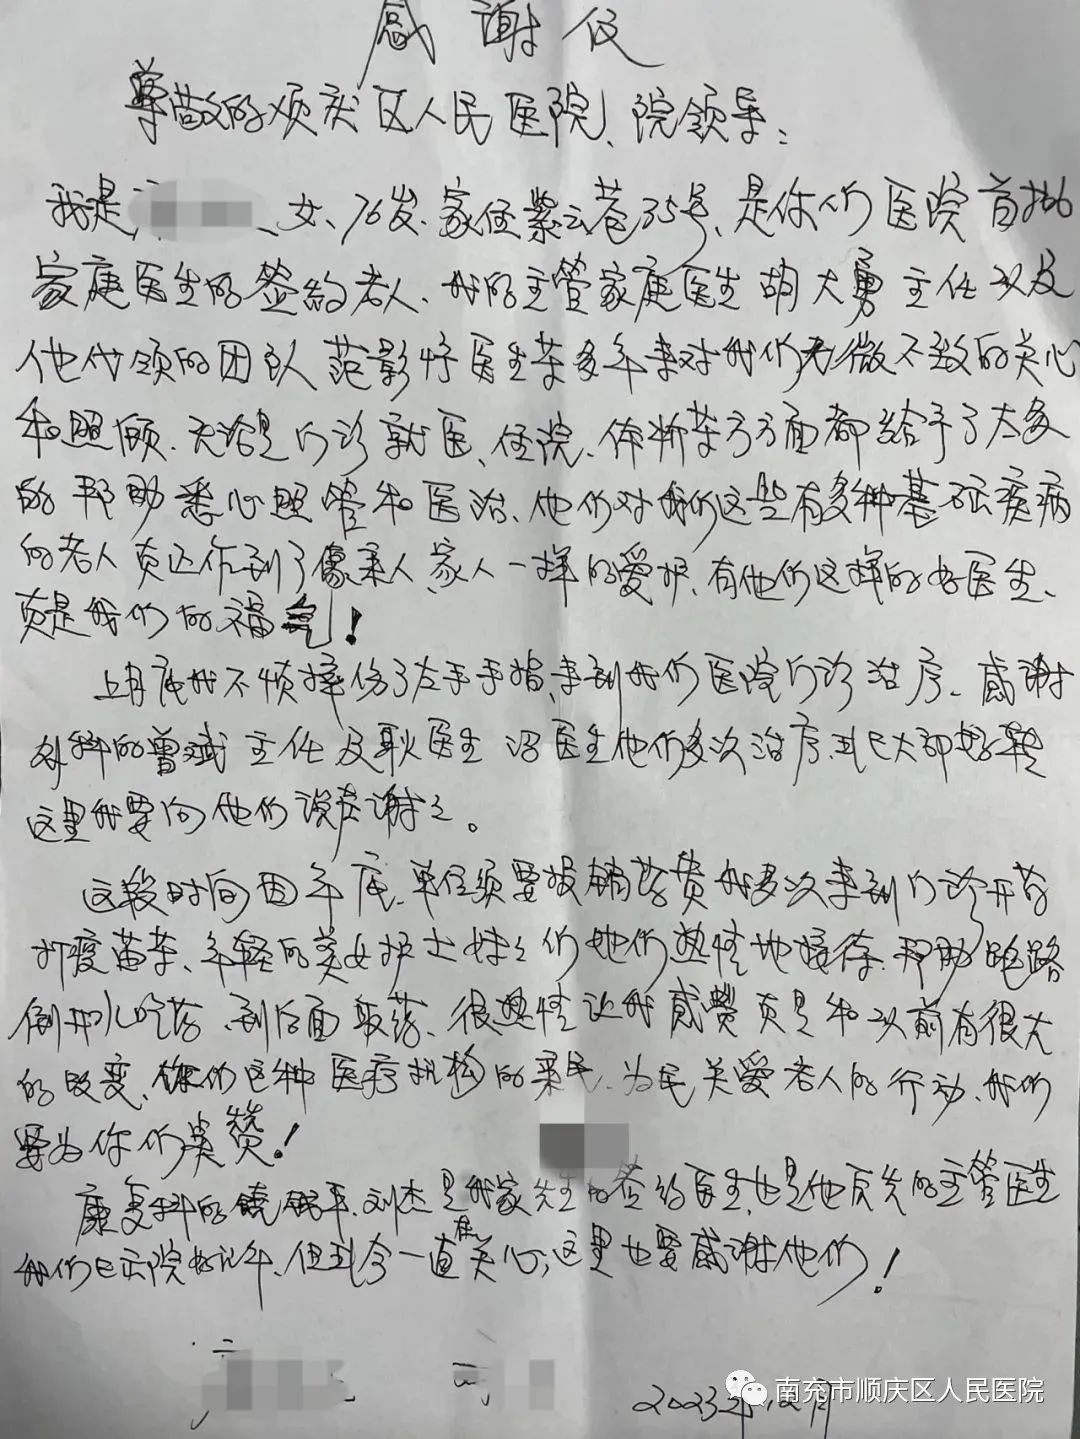 感谢信
尊敬的顺庆区人民医院、院领导：
我是 、女、76岁、家住紫云巷35号、是你们医院首批
家庭医生的签约老人、我的主管家庭医生胡大勇主任以及
他代领的团队范影好医生等多年来对我们无微不致的关心
和照顾、无论是门诊就医、住院、体析等方方面都给予了太多
的帮助悉心照管和医治、他们对我们这些有多种基础疾病
的老人真正作到了像亲人、家人一样的爱护、有他们这样的好医生、
真是我们的福气！
上月底我不慎摔伤了左手手指、来到我们医院门诊治疗、感谢
外科的曾斌主任及耿医生 医生他们多次治疗、现已大部好转
这里我要向他们说声谢谢。
这段时间因年底、单位须要报销药费我多次来到门诊开药
打疫苗等、年轻的美女护士妹妹们她们热情地接待、帮助跑路
倒开水吃药、到后面取药、很热情让我感赞真是和以前有很大
的改变、你们这种医疗机构的亲民、为民关爱老人的行动、我们
要为你们点赞！
康复科的饶 平、刘杰是我家先生的签约医生、也是他原先的主管医生
我们已出院好几年、但到今一直在关心，这里也要感谢他们！
2023年12月
南充市顺庆区人民医院